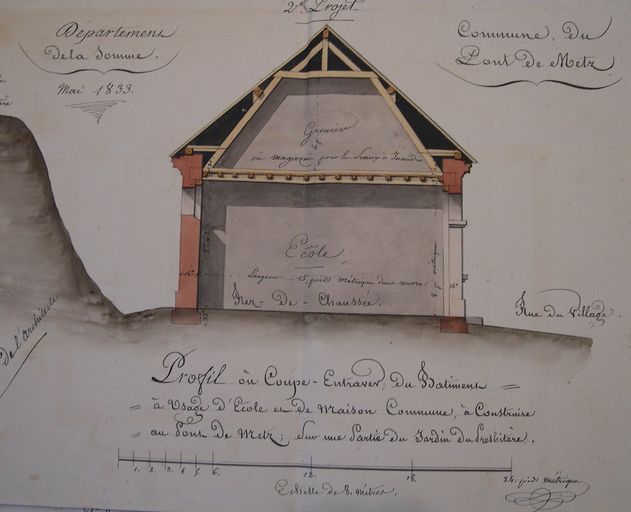 2e Projet
Département
de la Somme.
Mai 1833.
Commune, du
Pont de Metz
Grenier
ou magazin pour les Seaux à Incendie
Ecôle
Largeur 15 pieds métriques dans œuvre
Rez-de-Chaussée.
Rue du Village.
De l'architecte
Profil où Coupe-Entravers, du Batiment
à Usage d'Ecole et de Maison Commune, à Construire
au Pont de Metz; Sur une Partie du Jardin du Presbitère.
1. 2. 3. 4. 5. 6. 12. 18. 24. pieds métriques
Echelle de 8. mètres.